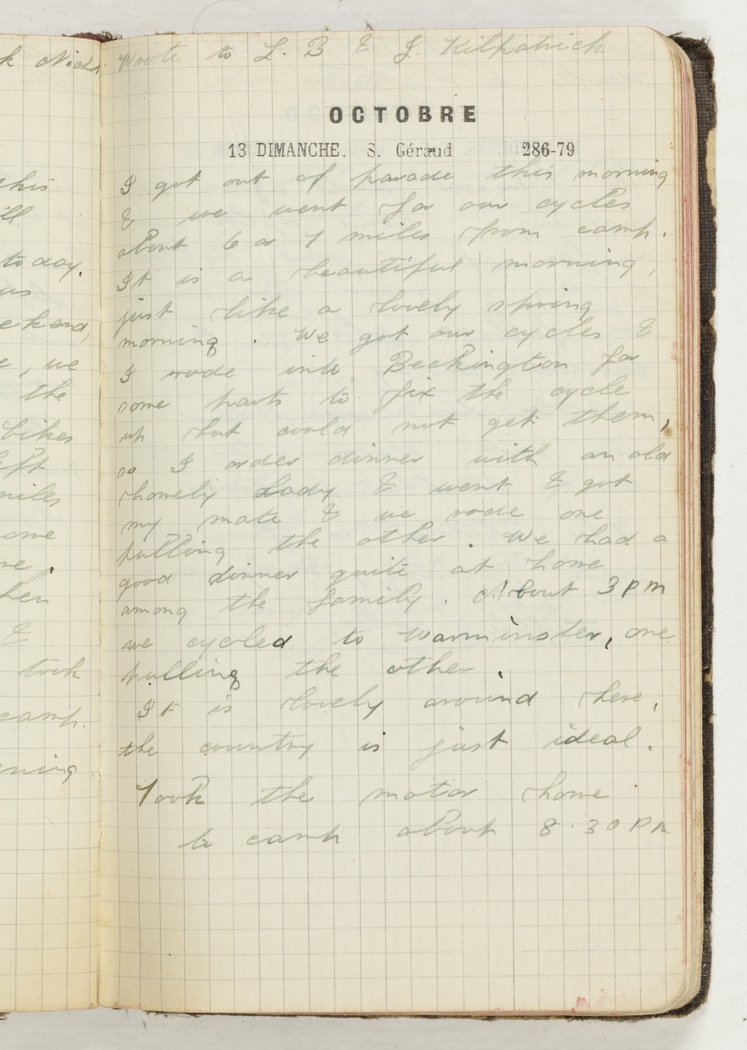 k Nich
Wrote to L. B & J. Kilpatrick
OCTOBRE
13 DIMANCHE. S. Géraud 286-79
I got out of parade this morning
& we went for our cycles
about 6 or 7 miles from camp.
It is a beautiful morning,
just like a lovely spring
morning. We got our cycles &
I rode into Beckington for
some parts to fix the cycle
up but could not get them,
so I order dinner with an old
homely Lady & went & got
my mate & we rode one
pulling the other. We had a
good dinner quite at home
among the family. About 3 PM
we cycled to Warminster, one
pulling the other.
It is lovely around here,
the country is just ideal.
Took the motor home
to camp about 8.30 PM
this
ill
today.
us
ekend,
e, we
the
bikes
left
miles
ome
me.
hen
&
took
camp.
ening